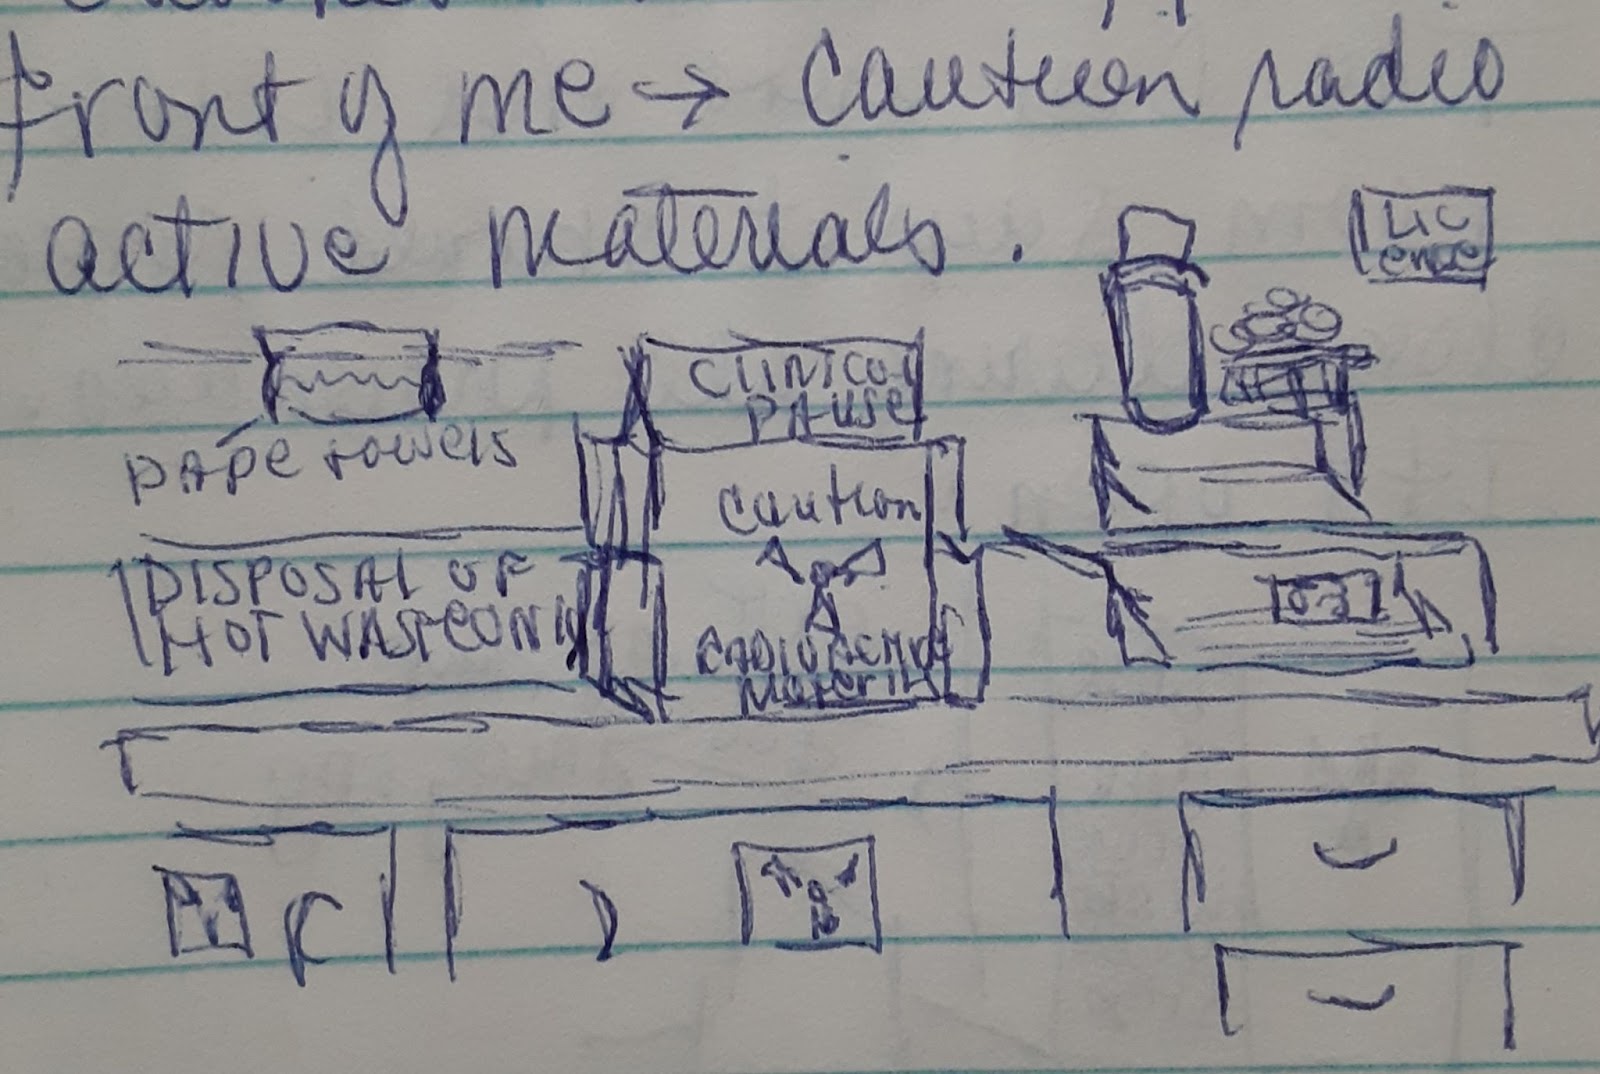 front of me → Caution radio
active materials.
LIC
ence
CLINICAL
PAUSE
PAPE towels
Caution
DISPOSAL OF
HOT WASTE ONLY
RADIOACTIVE
MATERIAL